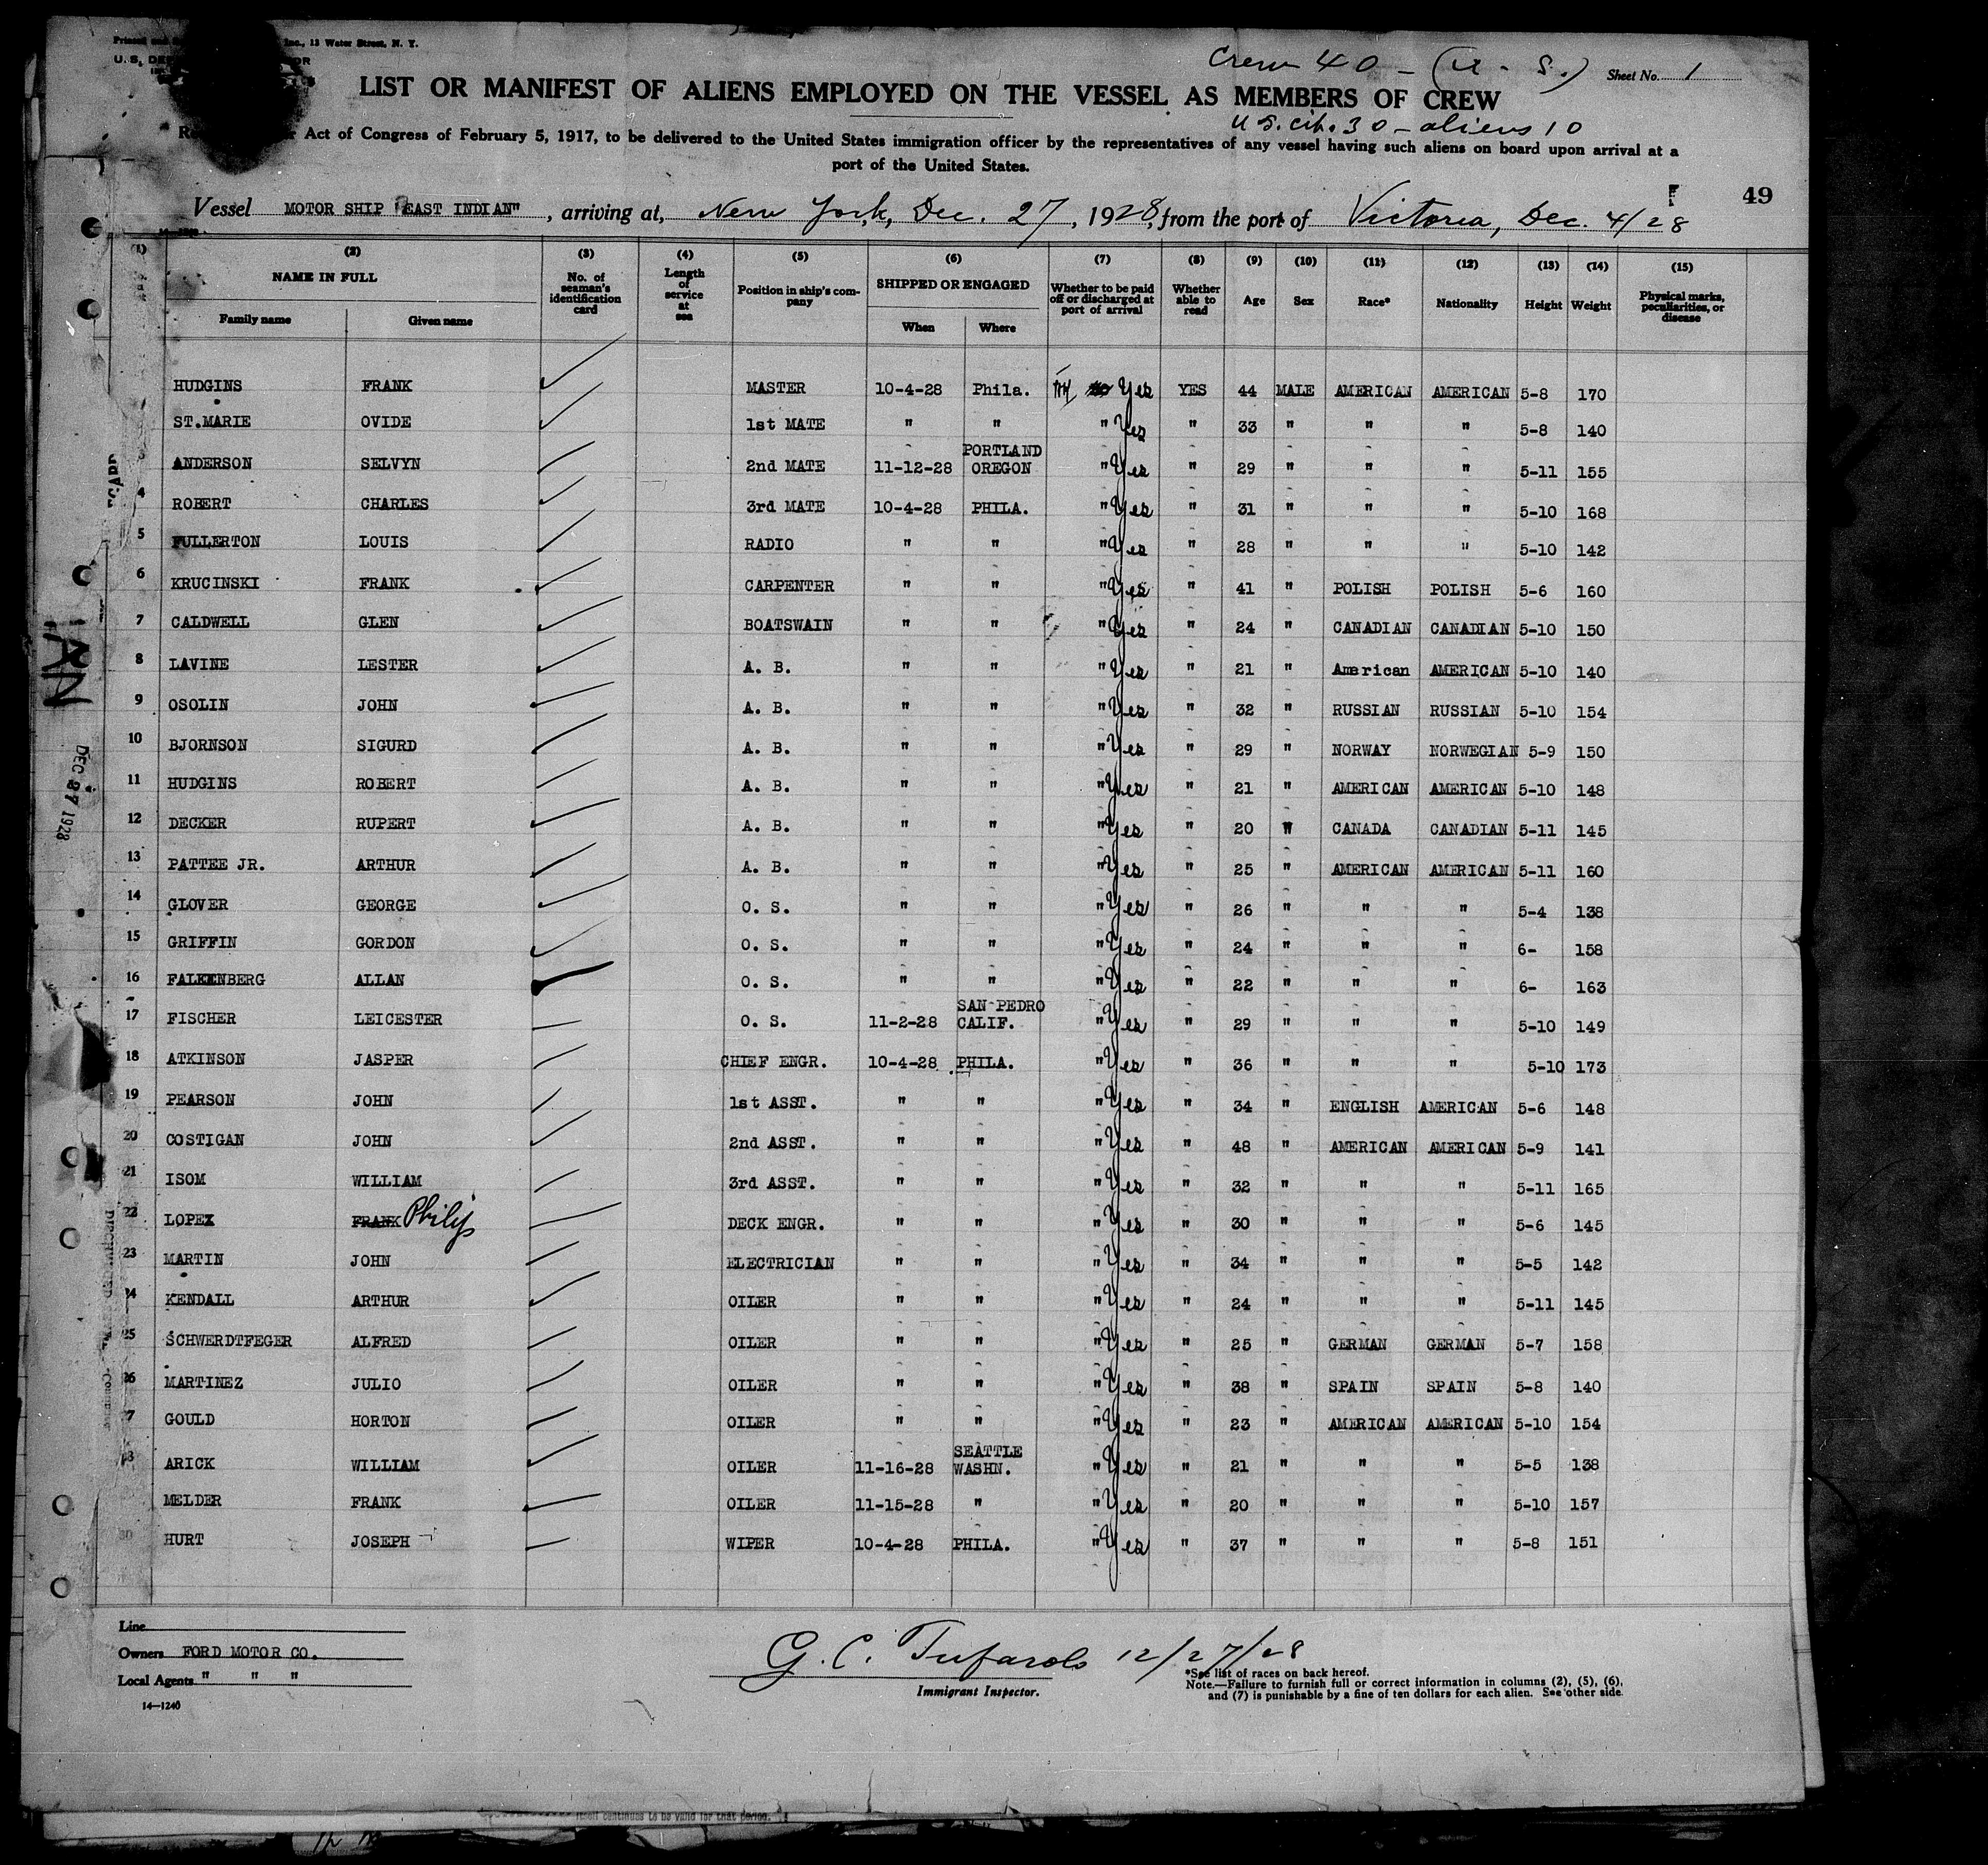 Inc., 13 Water Street, N. Y.
Crew 40 - (U. S.) Sheet No. 1
LIST OR MANIFEST OF ALIENS EMPLOYED ON THE VESSEL AS MEMBERS OF CREW
U S. cit. 30 - aliens 10
Act of Congress of February 5, 1917, to be delivered to the United States immigration officer by the representatives of any vessel having such aliens on board upon arrival at a
port of the United States.
49
Vessel MOTOR SHIP "EAST INDIAN", arriving at, New York, Dec. 27, 1928, from the port of Victoria, Dec. 4/28
(1) (2) (3) (4) (5) (6) (7) (8) (9) (10) (11) (12) (13) (14) (15)
NAME IN FULL No. of seaman's identification card Length of service at sea Position in ship's company SHIPPED OR ENGAGED Whether to be paid off or discharged at port of arrival Whether able to read Age Sex Race* Nationality Height Weight Physical marks, peculiarities, or disease
Family name Given name When Where
HUDGINS FRANK MASTER 10-4-28 Phila. Yes YES 44 MALE AMERICAN AMERICAN 5-8 170
ST.MARIE OVIDE 1st MATE " " " Yes " 33 " " " 5-8 140
3 ANDERSON SELVYN 2nd MATE 11-12-28 PORTLAND OREGON " Yes " 29 " " " 5-11 155
4 ROBERT CHARLES 3rd MATE 10-4-28 PHILA. " Yes " 31 " " " 5-10 168
5 FULLERTON LOUIS RADIO " " " Yes " 28 " " " 5-10 142
6 KRUCINSKI FRANK CARPENTER " " " Yes " 41 " POLISH POLISH 5-6 160
7 CALDWELL GLEN BOATSWAIN " " " Yes " 24 " CANADIAN CANADIAN 5-10 150
8 LAVINE LESTER A. B. " " " Yes " 21 " American AMERICAN 5-10 140
9 OSOLIN JOHN A. B. " " " Yes " 32 " RUSSIAN RUSSIAN 5-10 154
10 BJORNSON SIGURD A. B. " " " Yes " 29 " NORWAY NORWEGIAN 5-9 150
11 HUDGINS ROBERT A. B. " " " Yes " 21 " AMERICAN AMERICAN 5-10 148
12 DECKER RUPERT A. B. " " " Yes " 20 " CANADA CANADIAN 5-11 145
13 PATTEE JR. ARTHUR A. B. " " " Yes " 25 " AMERICAN AMERICAN 5-11 160
14 GLOVER GEORGE O. S. " " " Yes " 26 " " " 5-4 138
15 GRIFFIN GORDON O. S. " " " Yes " 24 " " " 6- 158
16 FALKENBERG ALLAN O. S. " " " Yes " 22 " " " 6- 163
17 FISCHER LEICESTER O. S. 11-2-28 SAN PEDRO CALIF. " Yes " 29 " " " 5-10 149
18 ATKINSON JASPER CHIEF ENGR. 10-4-28 PHILA. " Yes " 36 " " " 5-10 173
19 PEARSON JOHN 1st ASST. " " " Yes " 34 " ENGLISH AMERICAN 5-6 148
20 COSTIGAN JOHN 2nd ASST. " " " Yes " 48 " AMERICAN AMERICAN 5-9 141
21 ISOM WILLIAM 3rd ASST. " " " Yes " 32 " " " 5-11 165
22 LOPEZ FRANK Philip DECK ENGR. " " " Yes " 30 " " " 5-6 145
23 MARTIN JOHN ELECTRICIAN " " " Yes " 34 " " " 5-5 142
24 KENDALL ARTHUR OILER " " " Yes " 24 " " " 5-11 145
25 SCHWERDTFEGER ALFRED OILER " " " Yes " 25 " GERMAN GERMAN 5-7 158
26 MARTINEZ JULIO OILER " " " Yes " 38 " SPAIN SPAIN 5-8 140
27 GOULD HORTON OILER " " " Yes " 23 " AMERICAN AMERICAN 5-10 154
ARICK WILLIAM OILER 11-16-28 SEATTLE WASHN. " Yes " 21 " " " 5-5 138
MELDER FRANK OILER 11-15-28 " " Yes " 20 " " " 5-10 157
30 HURT JOSEPH WIPER 10-4-28 PHILA. " Yes " 37 " " " 5-8 151
DEC 27 1928
Line
Owners FORD MOTOR CO.
Local Agents " " "
14—1240
G. C. Tufarolo 12/27/28
Immigrant Inspector.
*See list of races on back hereof.
Note.—Failure to furnish full or correct information in columns (2), (5), (6),
and (7) is punishable by a fine of ten dollars for each alien. See other side.